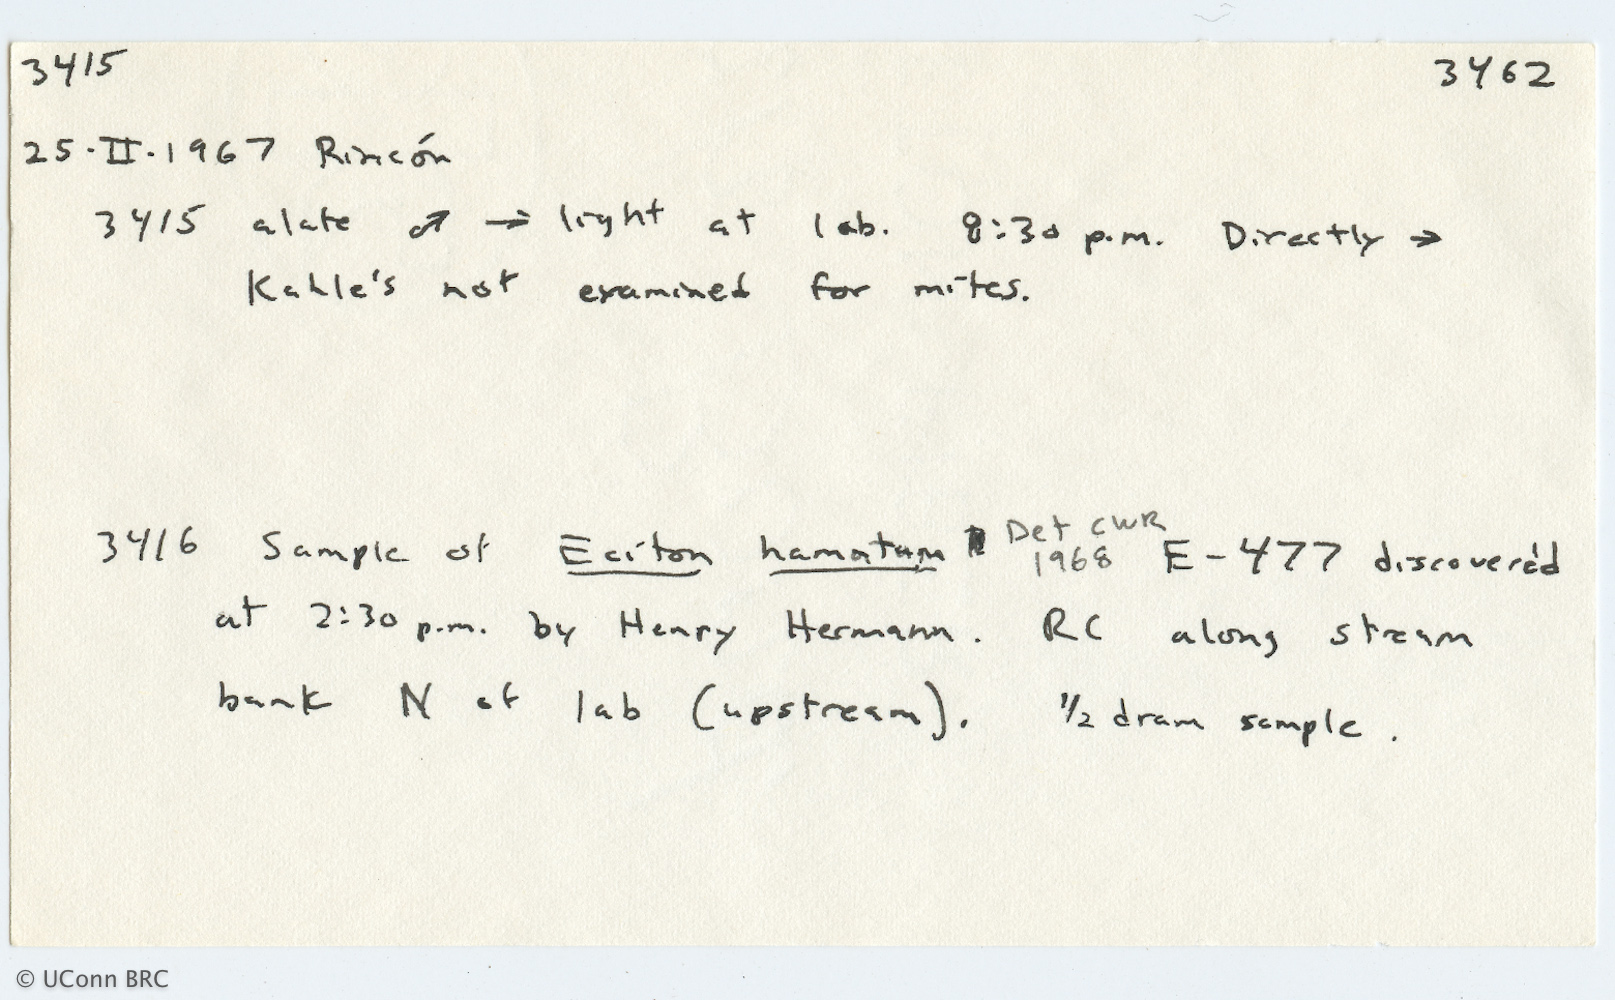 3415 3462
25·II·1967 Rincón
3415 alate ♂ → light at lab. 8:30 p.m. Directly →
Kahle's not examined for mites.
3416 Sample of Eciton hamatum Det CWR 1968 E-477 discovered
at 2:30 p.m. by Henry Hermann. RC along stream
bank N of lab (upstream). ½ dram sample.
© UConn BRC